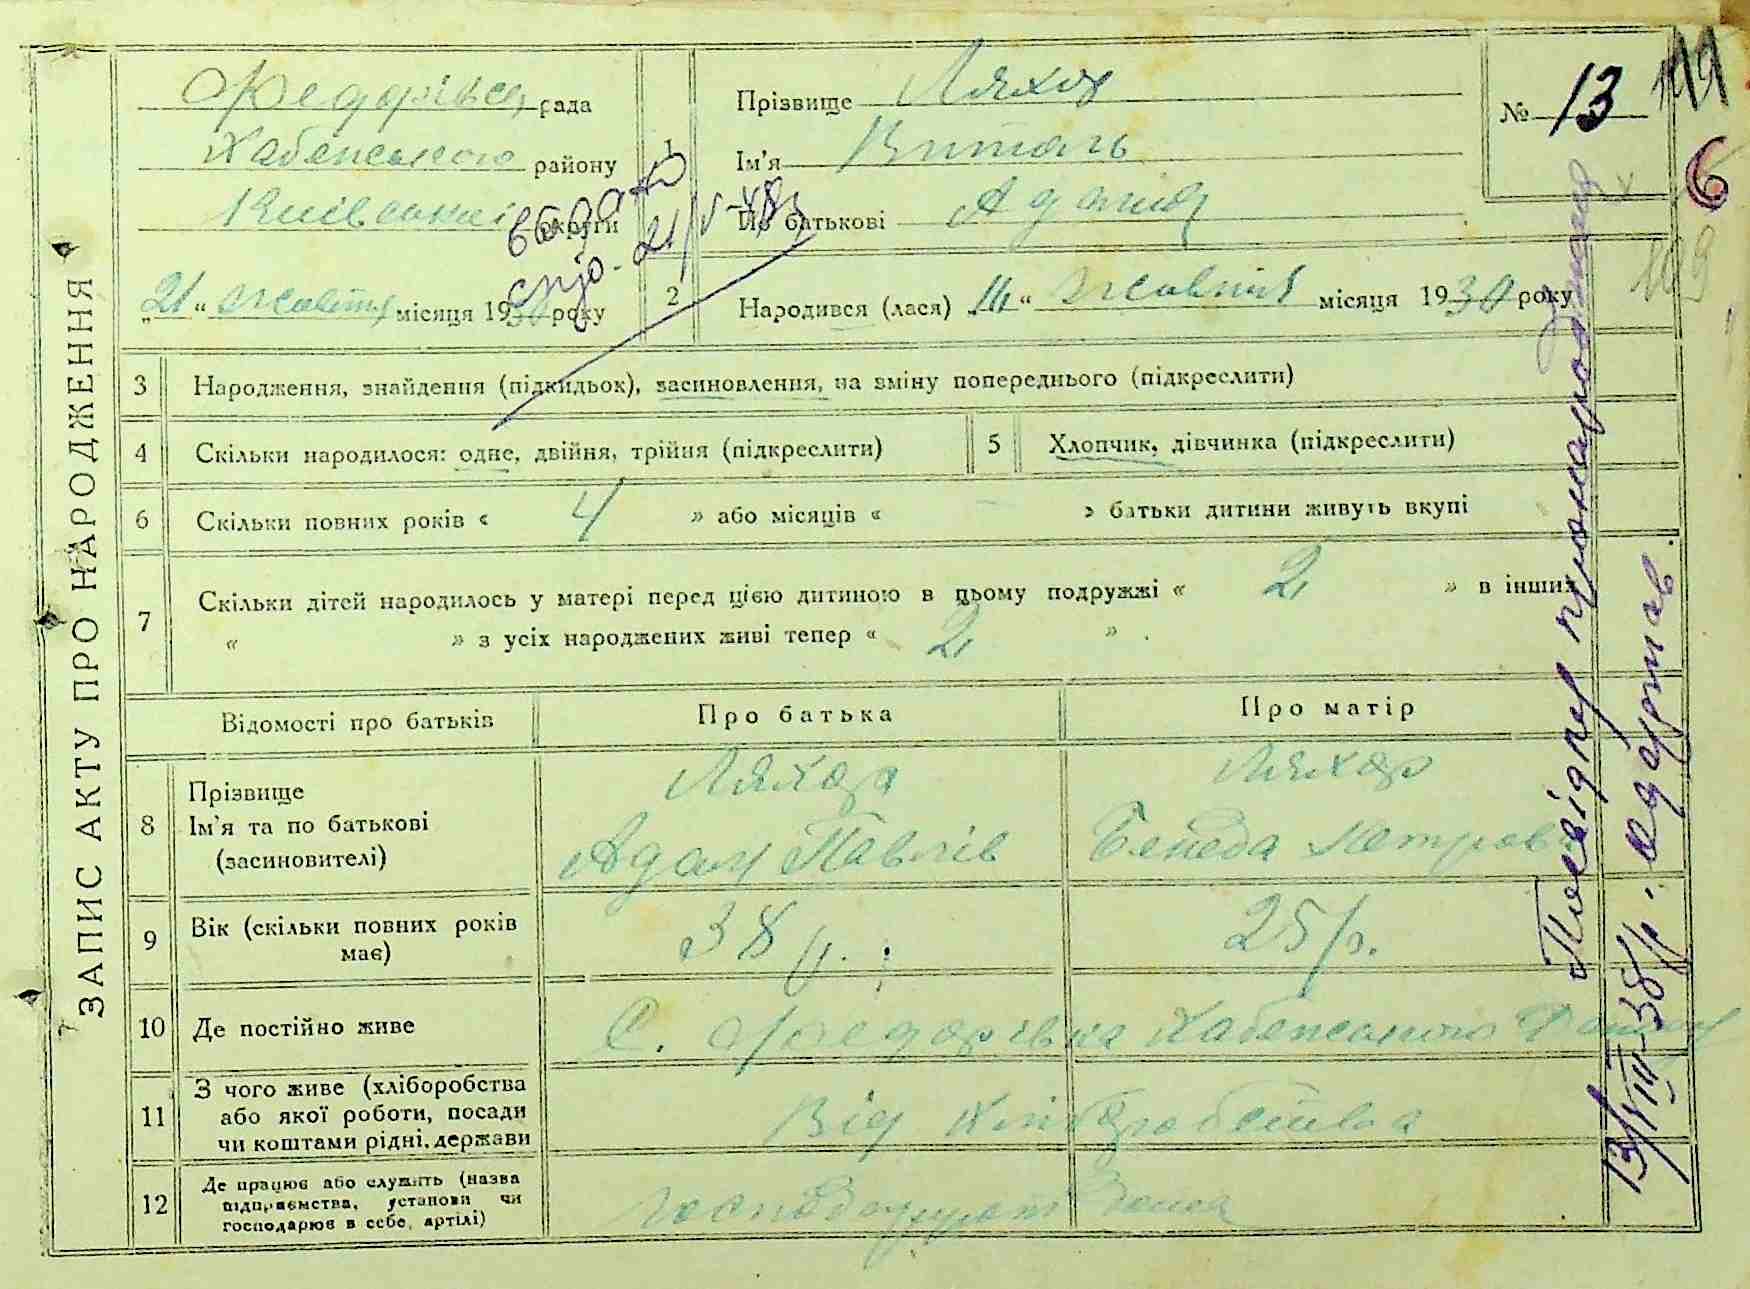 ЗАПИС АКТУ ПРО НАРОДЖЕННЯ
Федорівса рада
Хабенського району
Київської округи
№ 13
6
Прізвище Ляхор
Ім'я Виталь
По батькові Адамов
видано
21/V-48р
1
„21“ жовтня місяця 1930 року
2
Народився (лася) „14“ жовтня місяця 1930 року
3 Народження, знайдення (підкидьок), засиновлення, на зміну попереднього (підкреслити)
4 Скільки народилося: одне, двійня, трійня (підкреслити)
5 Хлопчик, дівчинка (підкреслити)
6 Скільки повних років « 4 » або місяців « - » батьки дитини живуть вкупі
7 Скільки дітей народилось у матері перед цією дитиною в цьому подружжі « 2 » в інших
« » з усіх народжених живі тепер « 2 » .
Відомості про батьків
Про батька
Про матір
8 Прізвище
Ім'я та по батькові
(засиновителі)
Ляхор
Адам Павлів
Ляхор
Петров
9 Вік (скільки повних років
має)
38 р.
25 р.
10 Де постійно живе
С. Федорівка Хабенського Району
11 З чого живе (хліборобства
або якої роботи, посади
чи коштами рідні, держави
Від хліборобства
12 Де працює або служить (назва
підприємства, установи чи
господарює в себе, артілі)
господарують
Посвідку про народження
13/VIII-38р.